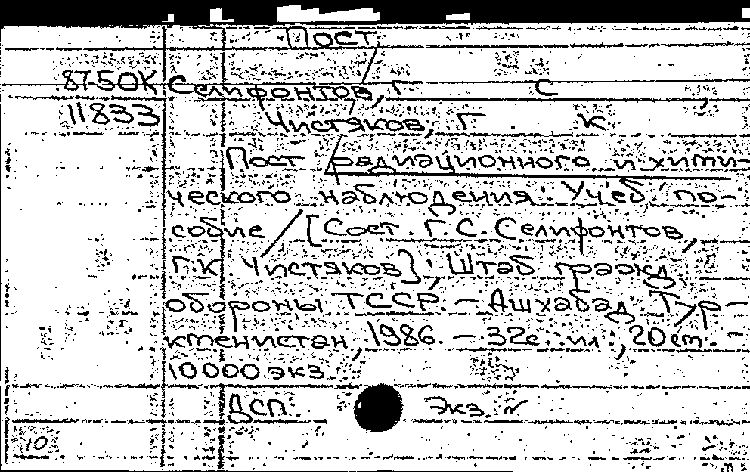 Пост
87-50К Селифонтов, Г. С.
11833 Чистяков, Г. К.
Пост радиационного и хими-
ческого наблюдения: Учеб. по-
собие / [Сост. Г.С. Селифонтов,
Г.К. Чистяков]; Штаб гражд.
обороны ТССР. - Ашхабад, Тур-
кменистан, 1986. - 32с.: ил.; 20 ст. -
10000 экз.
ДСП. Экз. №
10